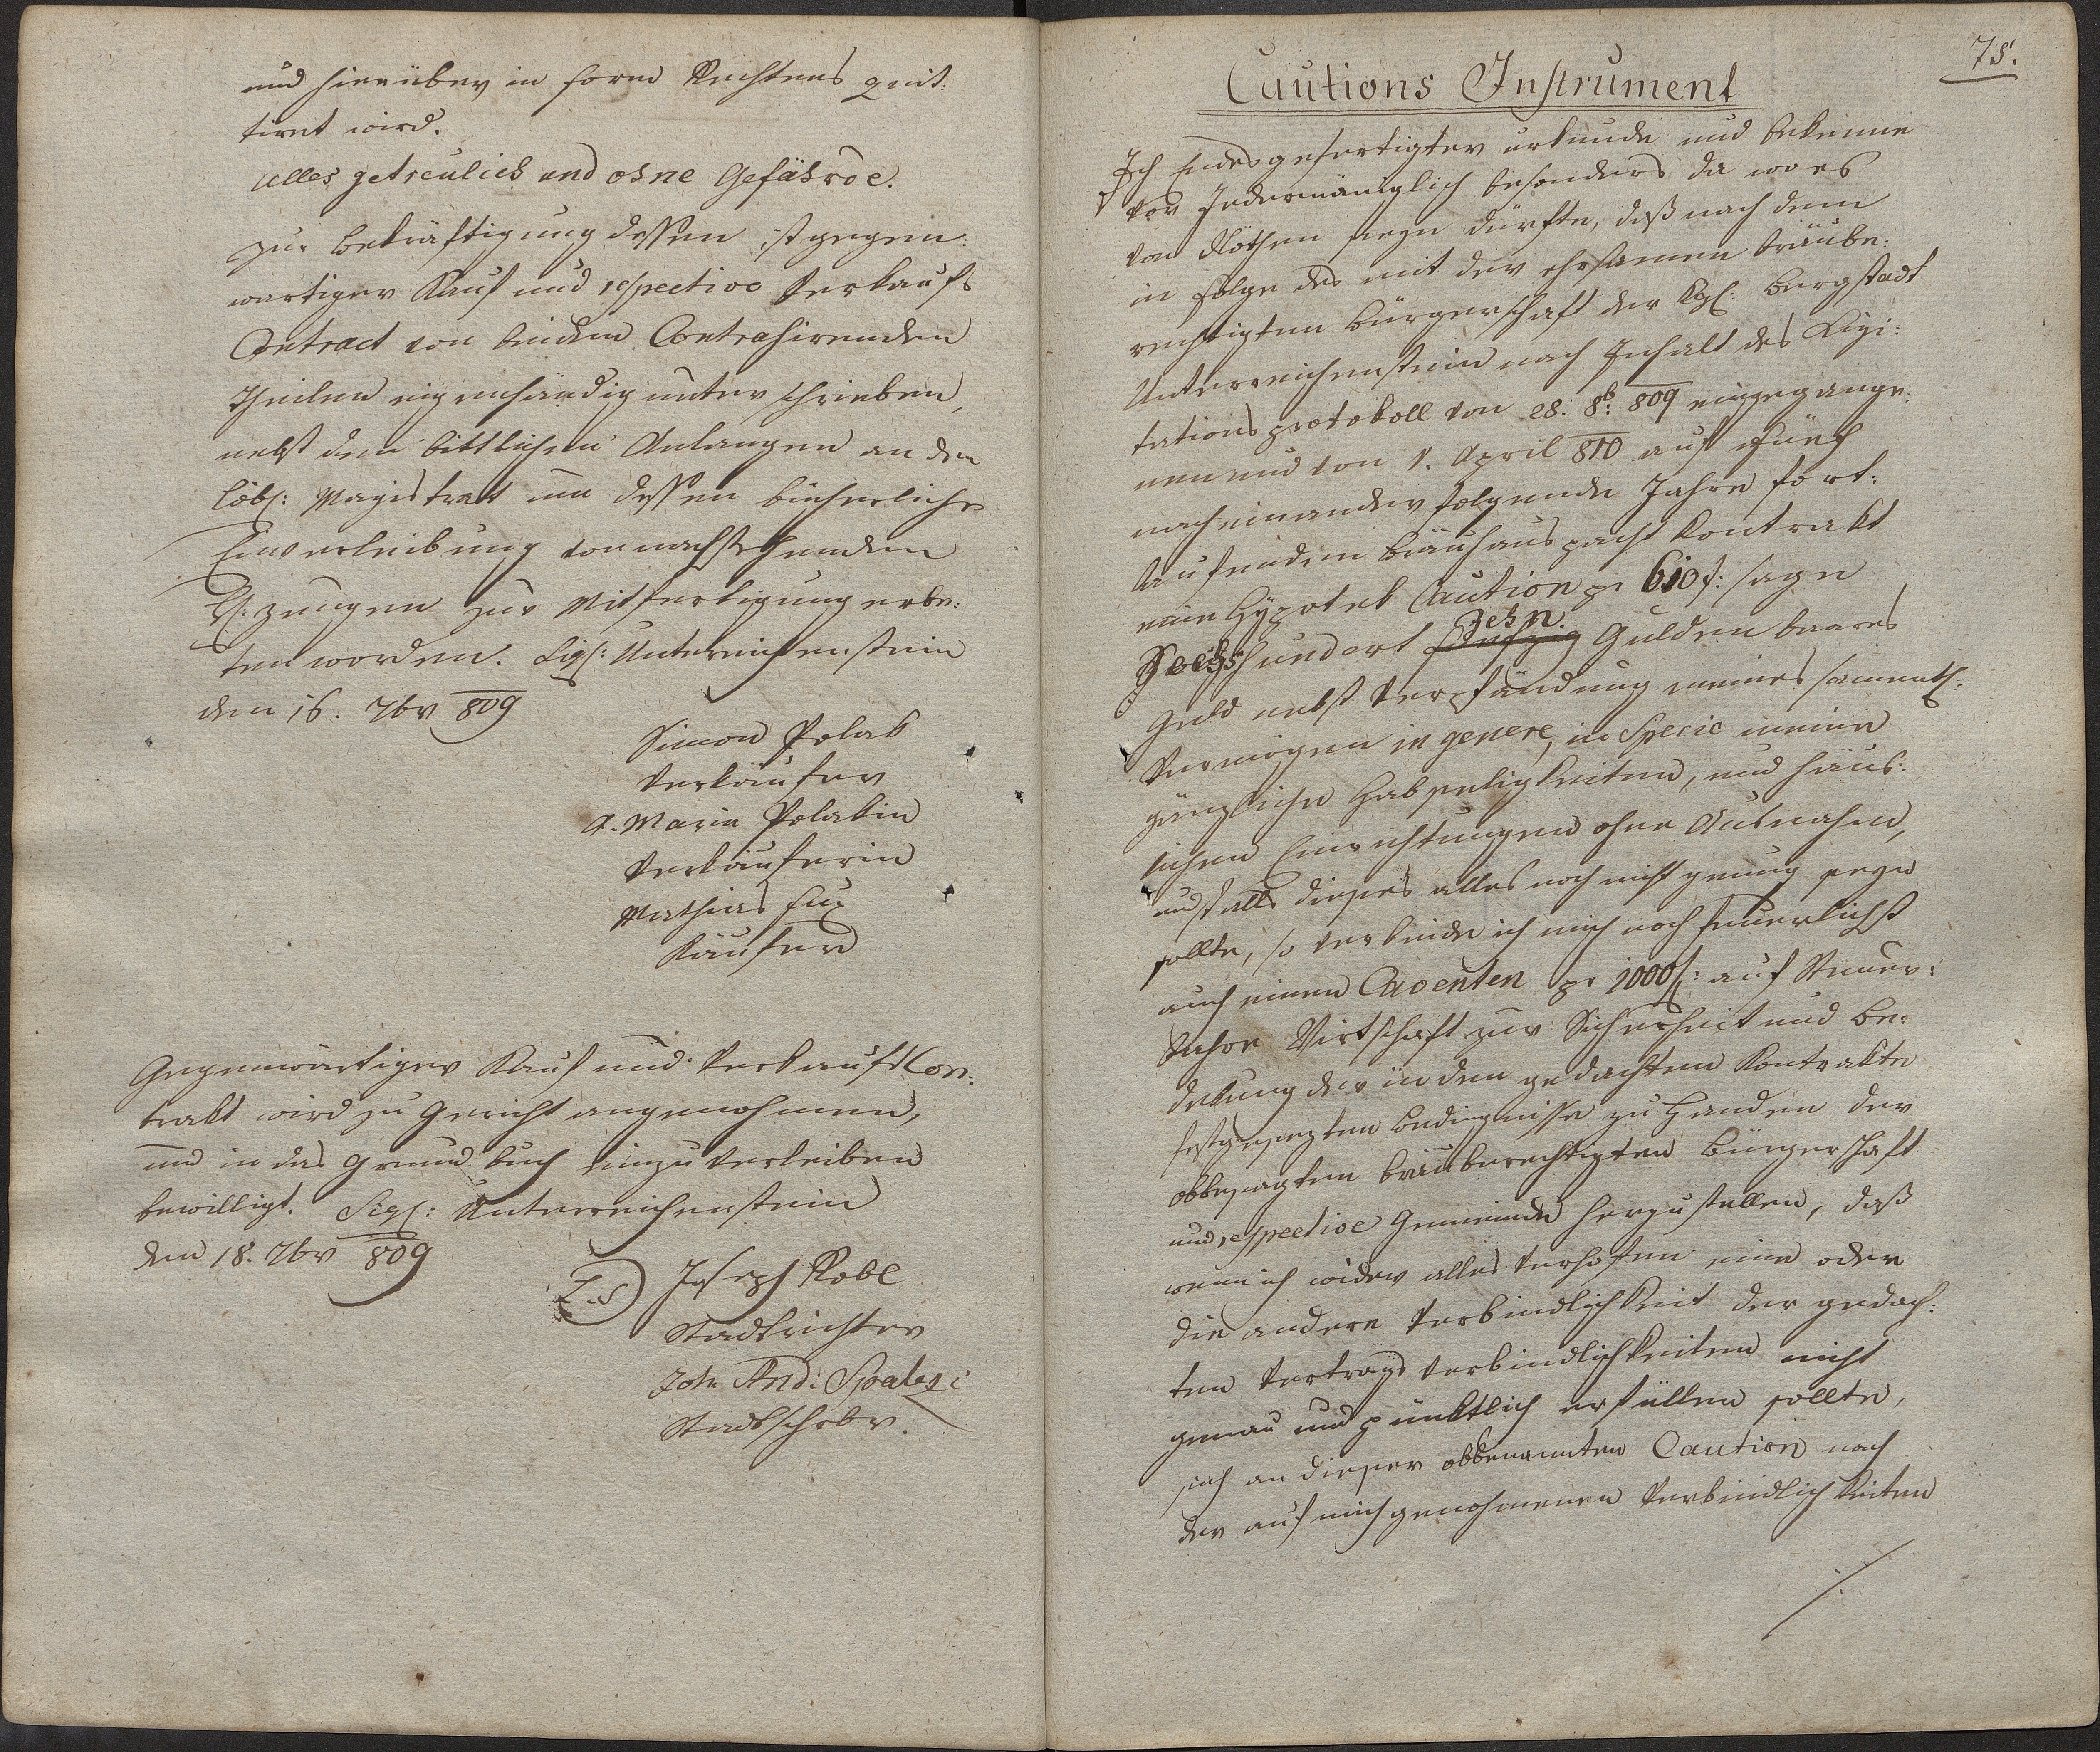 und hierüber in form Rechtens quit:
tiret wird.
Alles getreulich und ohne Gefährde.
Zur Bekräftigung dessen ist gegen:
wartiger Kauf und respective Verkaufs
Contract von beiden Contrahirenden
Theilen eigenhändig unterschrieben,
nebst dem bittlichen Anlangen an den
löbl: Magistrat um dessen bücherliche
Einverleibung von nachstehenden
H: zeugen zur Mitfertigung erbe:
ten worden. Sigl: Unterreichenstein
den 16. 7br 809
Simon Polak
Verkäufer
A. Maria Polakin
Verkäuferin
Mathias Fux
Käufer
Gegenwärtiger Kauf und Verkaufs Con:
trakt wird zu Gericht angenohmen,
und in das Grund buch einzuverleiben
bewilligt. Sigl: Unterreichenstein
den 18. 7br 809
L.S. Joseph Kobl
Stadtrichter
Joh And: Spalezi
Stadtschrbr.
75.
Cautions Instrument
Ich Endesgefertigter urkunde und bekenne
vor Jedermäniglich besonders da wo es
von Nöthen seyn dürfte, daß nach dem
in Folge des mit der ehrsamen bräube:
rechtigten Bürgerschaft der kgl: Bergstadt
Unterreichenstein nach Inhalt des Lizi:
tations protokoll von 28. 8b: 809 eingegange:
nen und von 1. April 810 auf fünf
nacheinander folgende Jahre fort:
laufenden Bräuhaus pacht Kontrakt
eine Hÿpotek Caution pr 610 f: sage
Sechshundert zehn Gulden baares
Geld nebst Verpfändung meines samentl:
Vermögen in genere, in Specie meine
gänzliche Habseligkeiten, und häus:
lichen Einrichtungen ohne Ausnahm,
und falls dieses alles noch nicht genug seyn
sollte, so verbinde ich mich noch feuerlichst
auch einen Caventen pr 1000 f: auf Steuer:
bahre Wirtschaft zur Sicherheit und Be:
dekung der in den gedachten Kontrakte
festgesezten Bedingnisse zu Handen der
obbesagten bräuberechtigten Bürgerschaft
und respective Gemeinde herzustellen, daß
wenn ich wider alles Verhofen eine oder
die andere Verbindlichkeit der gedach:
ten Vertrags Verbindlichkeiten nicht
genau und pünktlich erfüllen sollte,
sich an dieser obbenannten Caution nach
der auf mich genohmenen Verbindlichkeiten
./.